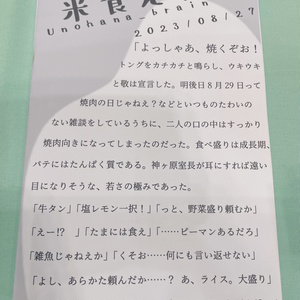 米食え
Unohana_brain
2023/08/27
「よっしゃあ、焼くぞお！
トングをカチカチと鳴らし、ウキウキ
と敬は宣言した。明後日８月29日って
焼肉の日じゃねえ？などといつものたわいの
ない雑談をしているうちに、二人の口の中はすっかり
焼肉向きになってしまったのだった。食べ盛りは成長期、
バテにはたんぱく質である。神ヶ原室長が耳にすれば遠い
目になりそうな、若さの極みであった。
「牛タン」「塩レモン一択！」「っと、野菜盛り頼むか」
「えー⁉　」「たまには食え」「……ピーマンあるだろ」
「雑魚じゃねえか」「くそお……何にも言い返せない」
「よし、あらかた頼んだか……？ あ、ライス。大盛り」